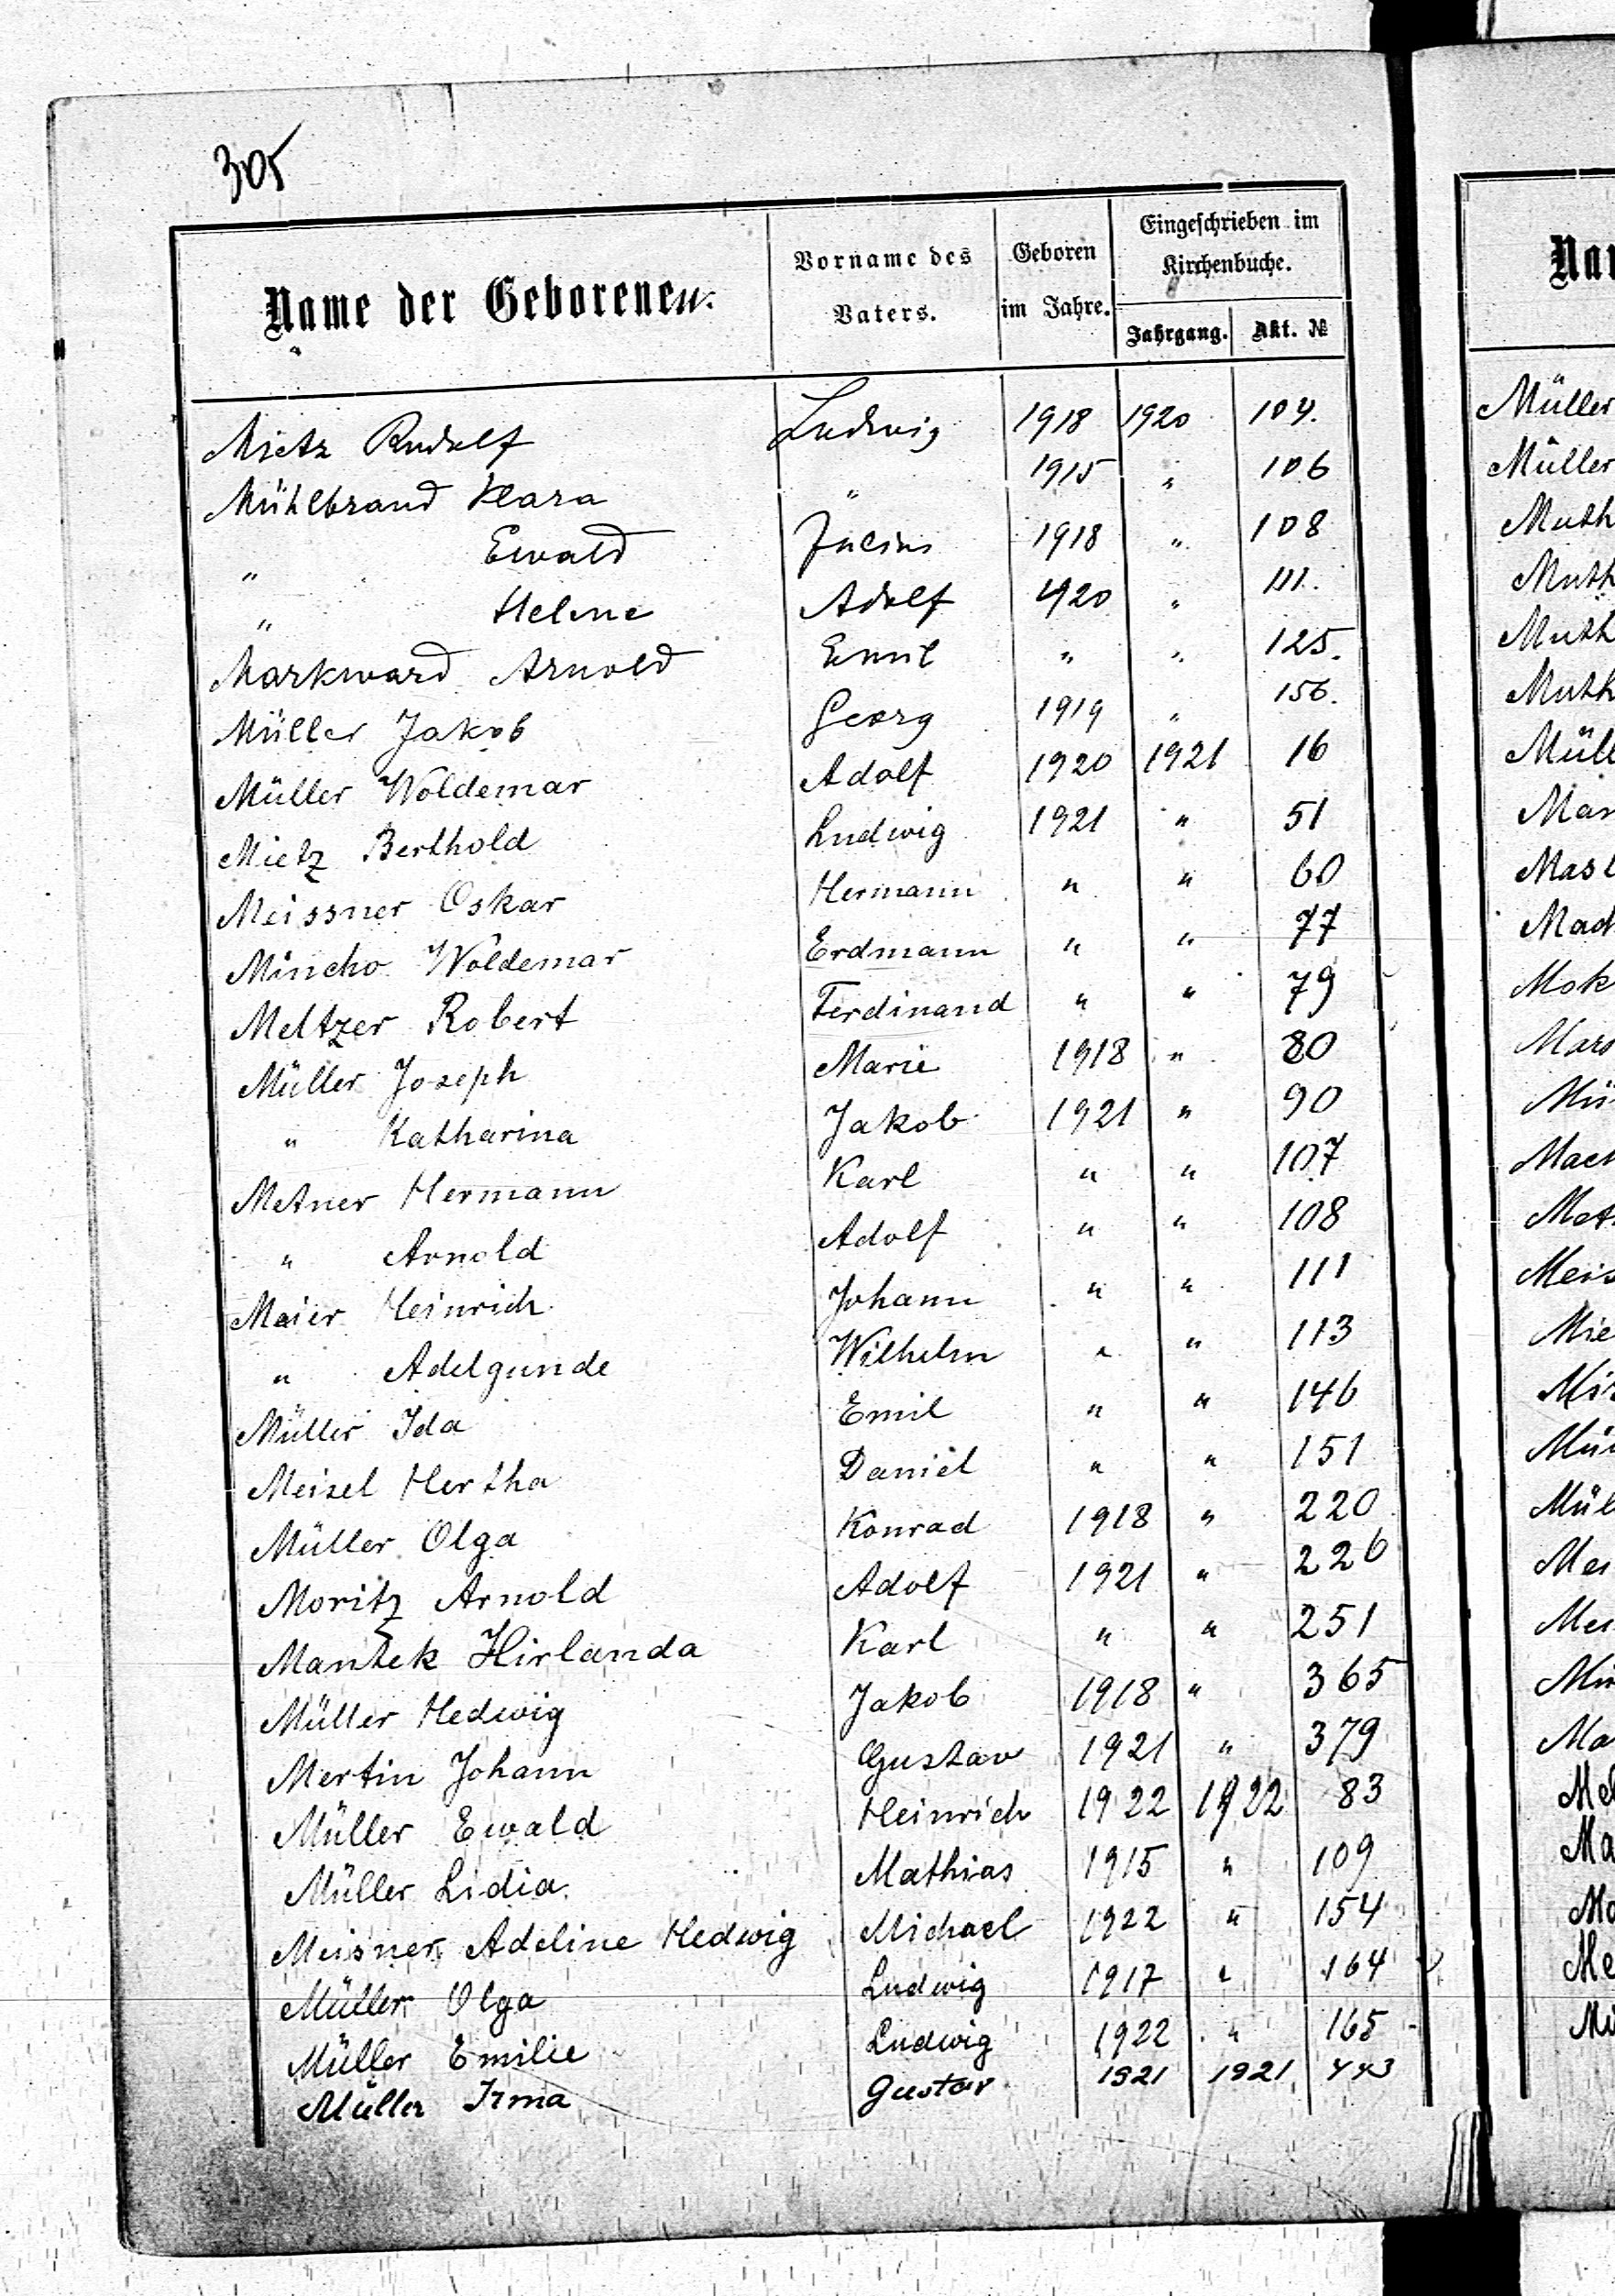 305
Name der Geborenen. Vorname des Vaters. Geboren im Jahre. Eingeschrieben im Kirchenbuche. Jahrgang. Akt. №
Mietz Rudolf Ludwig 1918 1920 104.
Mühlbrand Klara " 1915 " 106
" Ewald Julius 1918 " 108
" Helene Adolf 1920 " 111.
Markward Arnold Emil " " 125.
Müller Jakob Georg 1919 " 156.
Müller Woldemar Adolf 1920 1921 16
Mietz Berthold Ludwig 1921 " 51
Meissner Oskar Hermann " " 60
Mincho Woldemar Erdmann " " 77
Meltzer Robert Ferdinand " " 79
Müller Joseph Marie 1918 " 80
" Katharina Jakob 1921 " 90
Metner Hermann Karl " " 107
" Arnold Adolf " " 108
Maier Heinrich Johann " " 111
" Adelgunde Wilhelm " " 113
Müller Ida Emil " " 146
Meisel Hertha Daniel " " 151
Müller Olga Konrad 1918 " 220
Moritz Arnold Adolf 1921 " 226
Mantek Hirlanda Karl " " 251
Müller Hedwig Jakob 1918 " 365
Mertin Johann Gustav 1921 " 379
Müller Ewald Heinrich 1922 1922 83
Müller Lidia Mathias 1915 " 109
Meisner Adeline Hedwig Michael 1922 " 154
Müller Olga Ludwig 1917 " 164
Müller Emilie Ludwig 1922 " 165
Müller Irma Gustav 1921 1921 443
Müller
Müller
Muth
Muth
Muth
Muth
Müll
Mar
Mast
Mad
Mok
Mars
Mü
Mach
Met
Meis
Mie
Mü
Mül
Mei
Ma
Mel
Ma
Me